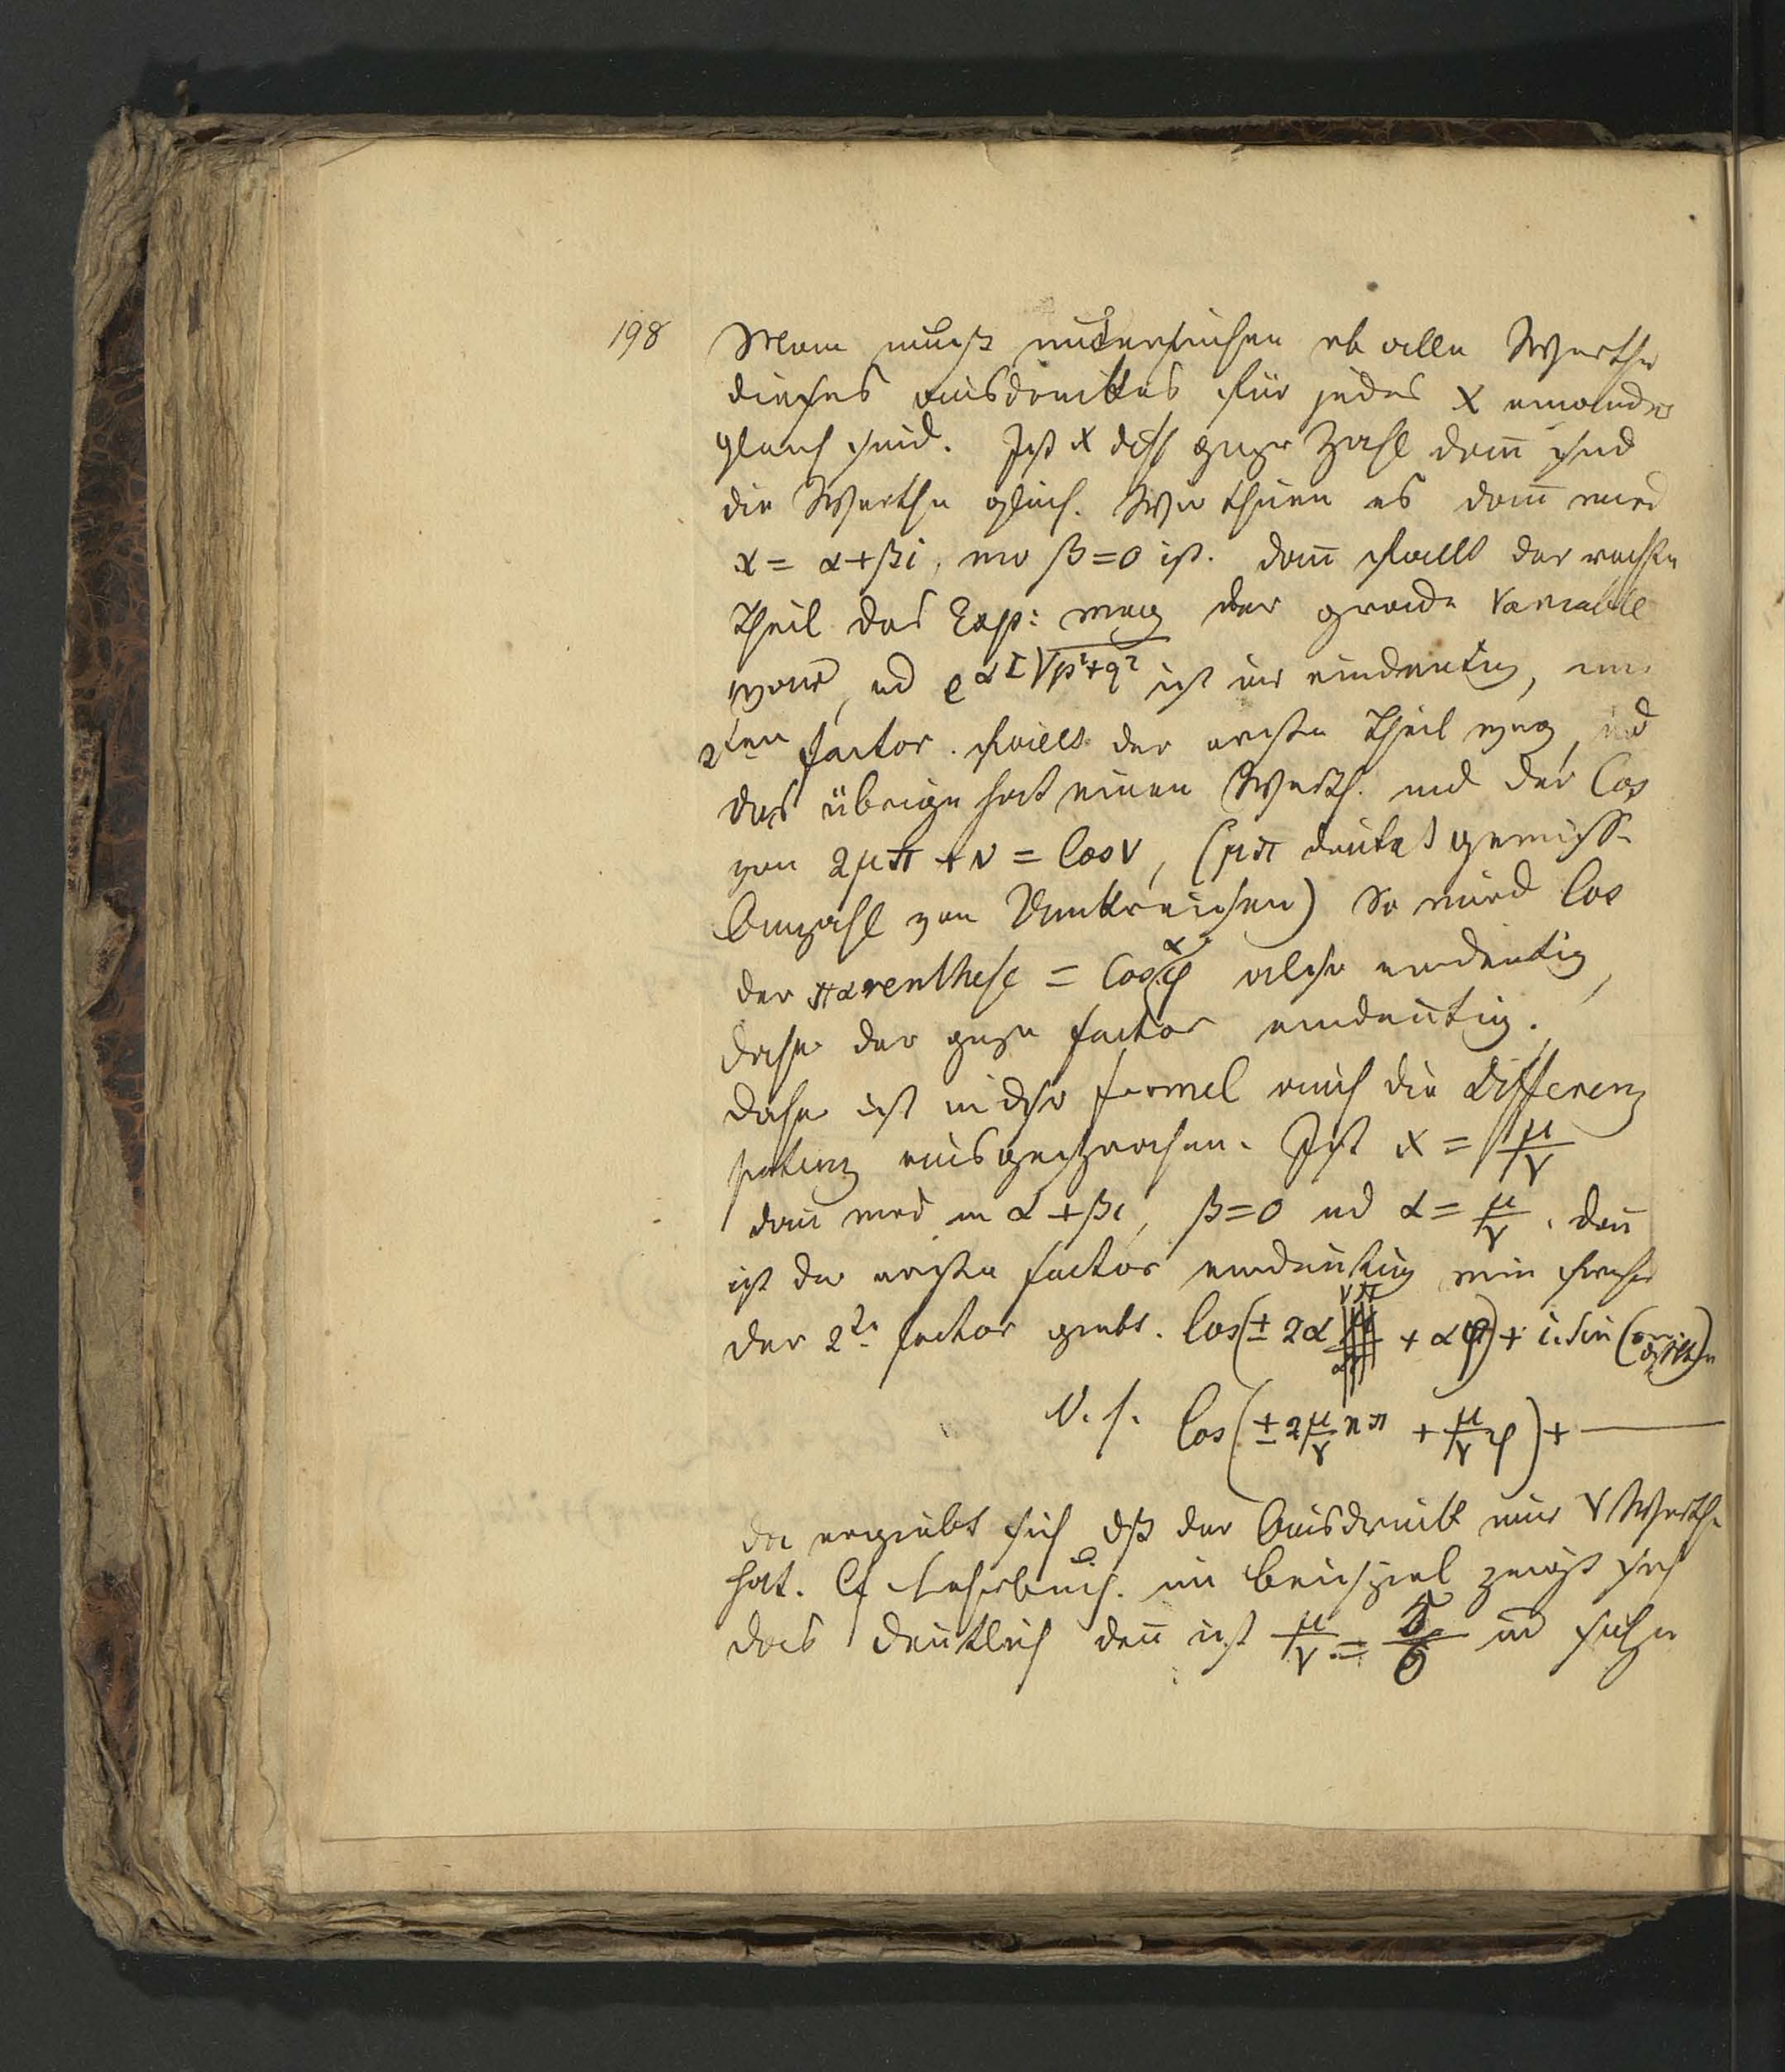 198 Man muß untersuchen ob alle Werthe
dieses Ausdruckes für jedes x einander
gleich sind. Ist x dß gnze Zahl dann sind
die Werthe gleich. Wir thuen es dann wird
x = α+βi, wo β=0 ist. dann faellt der rechte
Theil des Exp: weg der grade variabel
war, ud e^{αl√p²+q²} ist nur eindeutig, im
2ten factor. faellt der erste Theil weg, ud
das übrige hat einen Werth. und der Cos
von 2μπ + v = Cos v, (μπ deutet gewisse
Anzahl von Umkreisen) So wird Cos
der παrenthese = Cos αφ also eindeutig,
daher der gnze factor eindeutig.
daher ist in dsr formel auch die Differenz
potenz ausgesprochen. Ist x = μ/ν
dan wird in α+βi, β=0 ud α = μ/ν. dan
ist der erste factor eindeutig wie früher
der 2te factor giebt. Cos(± 2α νπ + αφ) + i. Sin ( )
V. s. Cos(± 2 μ/ν nπ + μ/ν φ) +
da ergiebt sich dß der Ausdruck nur ν Werthe
hat. Cf Lehrbuch. im Beispiel zeigt sich
das deutlich den ist μ/ν = 5/6 ud